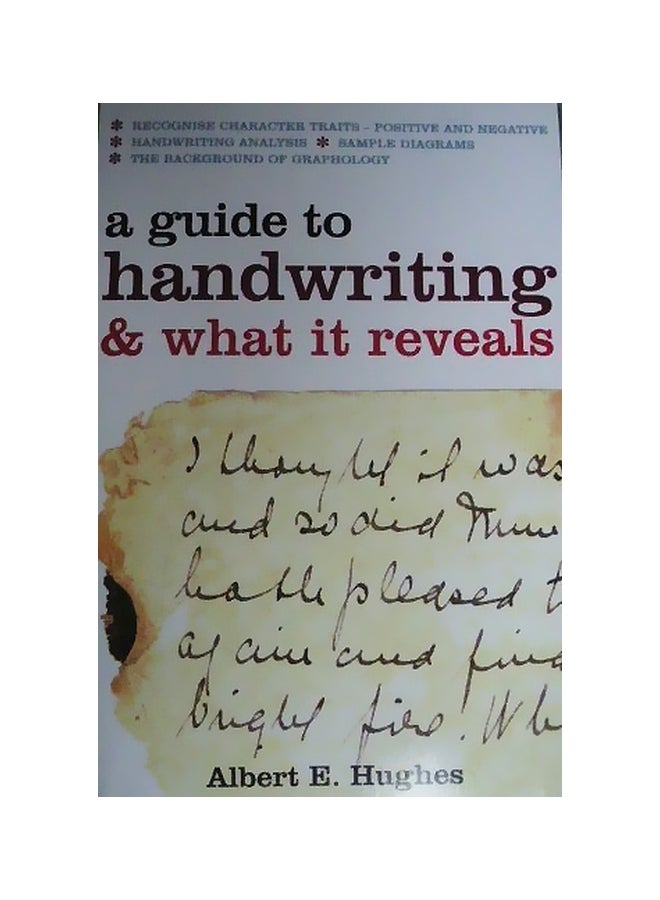 * RECOGNISE CHARACTER TRAITS – POSITIVE AND NEGATIVE
* HANDWRITING ANALYSIS * SAMPLE DIAGRAMS
* THE BACKGROUND OF GRAPHOLOGY
a guide to
handwriting
& what it reveals
I thought it was
and so did Mum
both pleased t
again and find
bright fire! Wh
Albert E. Hughes